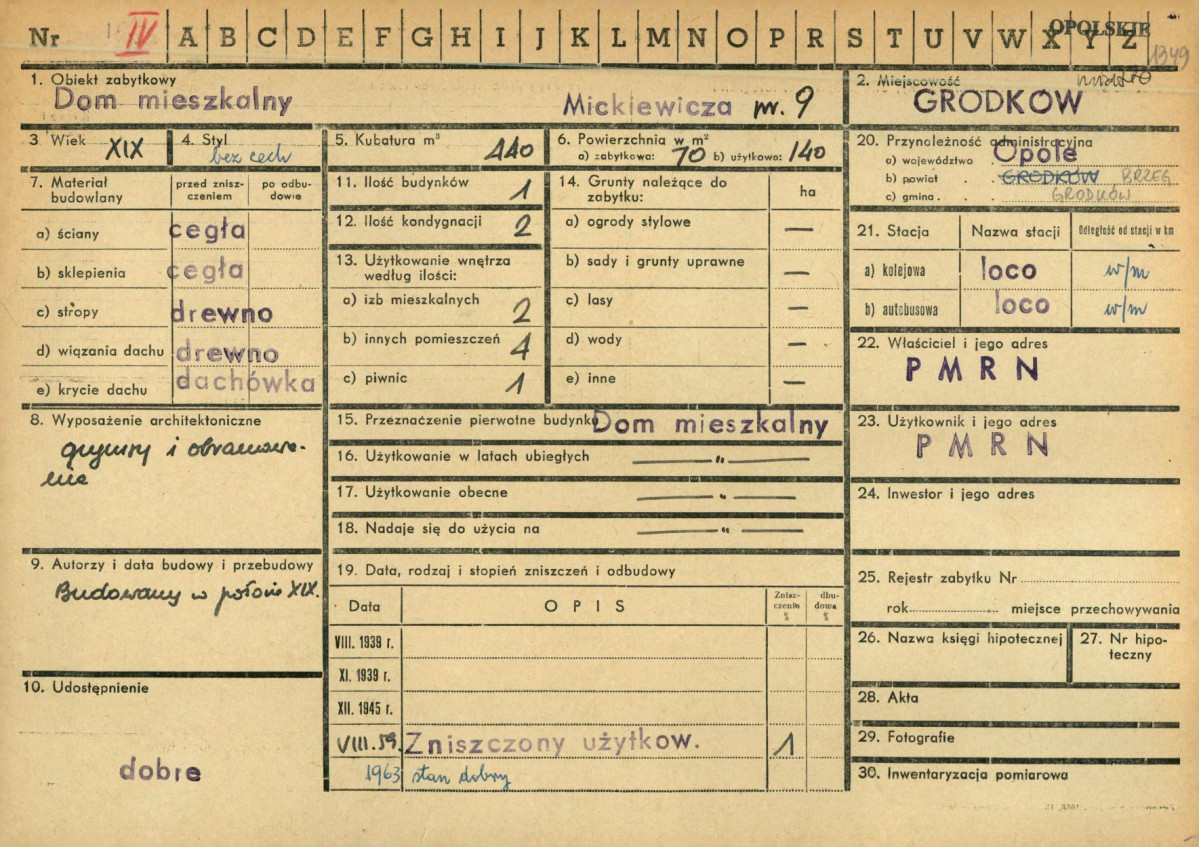 Nr IV A B C D E F G H I J K L M N O P R S T U V W X Y Z
OPOLSKIE
1349
1. Obiekt zabytkowy
Dom mieszkalny Mickiewicza nr. 9
2. Miejscowość miasto
GRODKÓW
3 Wiek XIX
4. Styl
bez cech
5. Kubatura m³ 440
6. Powierzchnia w m²
a) zabytkowa: 70 b) użytkowa: 140
20. Przynależność administracyjna
a) województwo Opole
b) powiat GRODKÓW BRZEG
c) gmina GRODKÓW
7. Materiał budowlany
przed zniszczeniem
po odbudowie
a) ściany cegła
b) sklepienia cegła
c) stropy drewno
d) wiązania dachu drewno
e) krycie dachu dachówka
11. Ilość budynków 1
12. Ilość kondygnacji 2
13. Użytkowanie wnętrza
według ilości:
a) izb mieszkalnych 2
b) innych pomieszczeń 4
c) piwnic 1
14. Grunty należące do
zabytku:
ha
a) ogrody stylowe —
b) sady i grunty uprawne —
c) lasy —
d) wody —
e) inne —
21. Stacja Nazwa stacji Odległość od stacji w km
a) kolejowa loco w/m
b) autobusowa loco w/m
22. Właściciel i jego adres
PMRN
8. Wyposażenie architektoniczne
gzymsy i obramowa-
nia
15. Przeznaczenie pierwotne budynku Dom mieszkalny
16. Użytkowanie w latach ubiegłych — " —
17. Użytkowanie obecne — " —
18. Nadaje się do użycia na — " —
23. Użytkownik i jego adres
PMRN
24. Inwestor i jego adres
9. Autorzy i data budowy i przebudowy
Budowany w połowie XIX.
19. Data, rodzaj i stopień zniszczeń i odbudowy
Data OPIS Znisz-
czenia
%
dbu-
dowa
%
VIII. 1939 r.
XI. 1939 r.
XII. 1945 r.
VIII. 59. Zniszczony użytkow. 1
1963 stan dobry
25. Rejestr zabytku Nr
rok miejsce przechowywania
26. Nazwa księgi hipotecznej
27. Nr hipo-
teczny
10. Udostępnienie
dobre
28. Akta
29. Fotografie
30. Inwentaryzacja pomiarowa